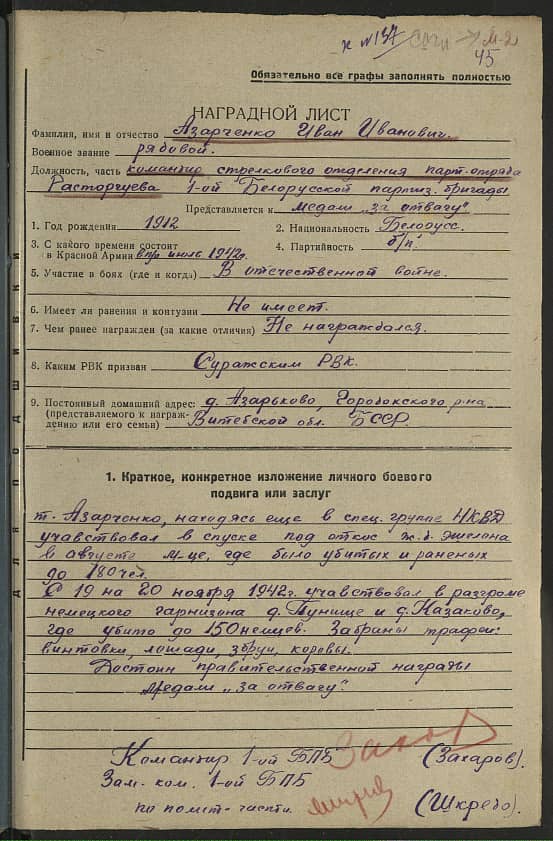 к №137 Сочи → М-2
45
Обязательно все графы заполнять полностью
НАГРАДНОЙ ЛИСТ
Фамилия, имя и отчество Азарченко Иван Иванович.
Военное звание рядовой.
Должность, часть командир стрелкового отделения парт.отряда
Расторгуева 1-ой Белорусской партиз. бригады
Представляется к медали „за отвагу"
1. Год рождения 1912 2. Национальность Белорусс.
3. С какого времени состоит 4. Партийность б/п.
в Красной Армии в пр июль 1942г.
5. Участие в боях (где и когда) В отечественной войне.
6. Имеет ли ранения и контузии Не имеет.
7. Чем ранее награжден (за какие отличия) Не награждался.
8. Каким РВК призван Суражским РВК.
9. Постоянный домашний адрес: д. Азарьково, Городокского р-на
(представляемого к награж-
дению или его семьи) Витебской обл. БССР.
1. Краткое, конкретное изложение личного боевого
подвига или заслуг
т. Азарченко, находясь еще в спец. группе НКВД
учавствовал в спуске под откос ж.д. эшелона
в августе м-це, где было убитых и раненых
до 180 чел.
С 19 на 20 ноября 1942г. учавствовал в разгроме
немецкого гарнизона д. Пунище и д. Казаково,
где убито до 150 немцев. Забраны трафеи:
винтовки, лошади, збруи, коровы.
Достоин правительственной награды
медали „за отвагу".
Командир 1-ой БПБ (Захаров).
Зам. ком. 1-ой БПБ
по полит-части. (Шкредо).
Для подшивки